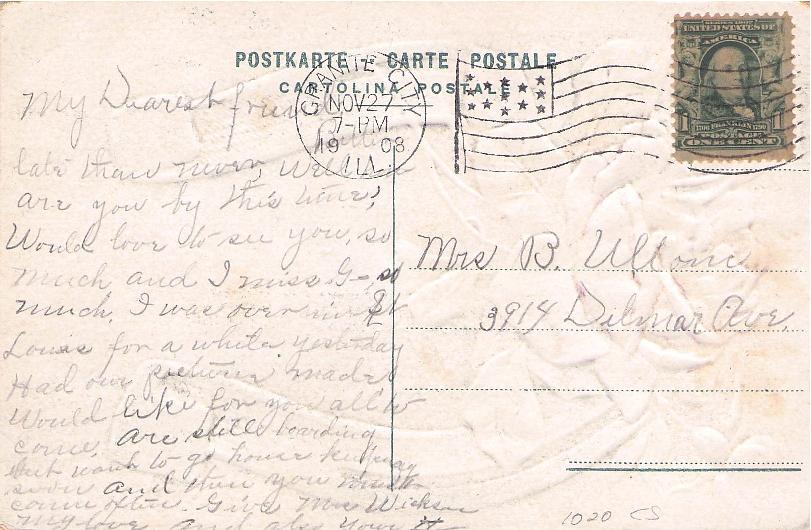 POSTKARTE - CARTE POSTALE
CARTOLINA POSTALE
GRANITE CITY
NOV 27
7-PM
1908
ILL.
SERIES 1902
UNITED STATES OF
AMERICA
1706 FRANKLIN 1790
POSTAGE
1 ONE CENT 1
My Dearest friend
late than never, Well
are you by this time?
Would love to see you, so
much and I miss G-, so
much. I was over in St
Louis for a while yesterday
Had our pictures made,
Would like for you all to
come, are still boarding
but want to go house keeping
soon and then you must
come often. Give Mrs
My love and also your
Mrs B.
3914 Delmar Ave.
1020 CS